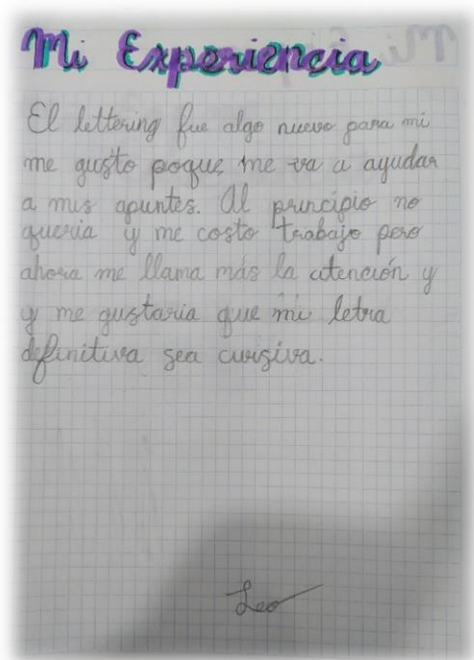 Mi Experiencia
El lettering fue algo nuevo para mi
me gusto poque me va a ayudar
a mis apuntes. Al principio no
queria y me costo trabajo pero
ahora me llama más la atención y
y me gustaria que mi letra
definitiva sea cursiva.
Leo